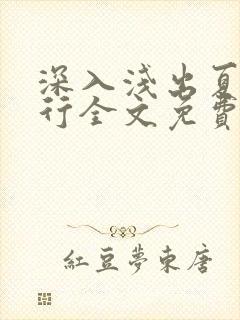 深入浅出夏
行全文免費
紅豆夢東唐